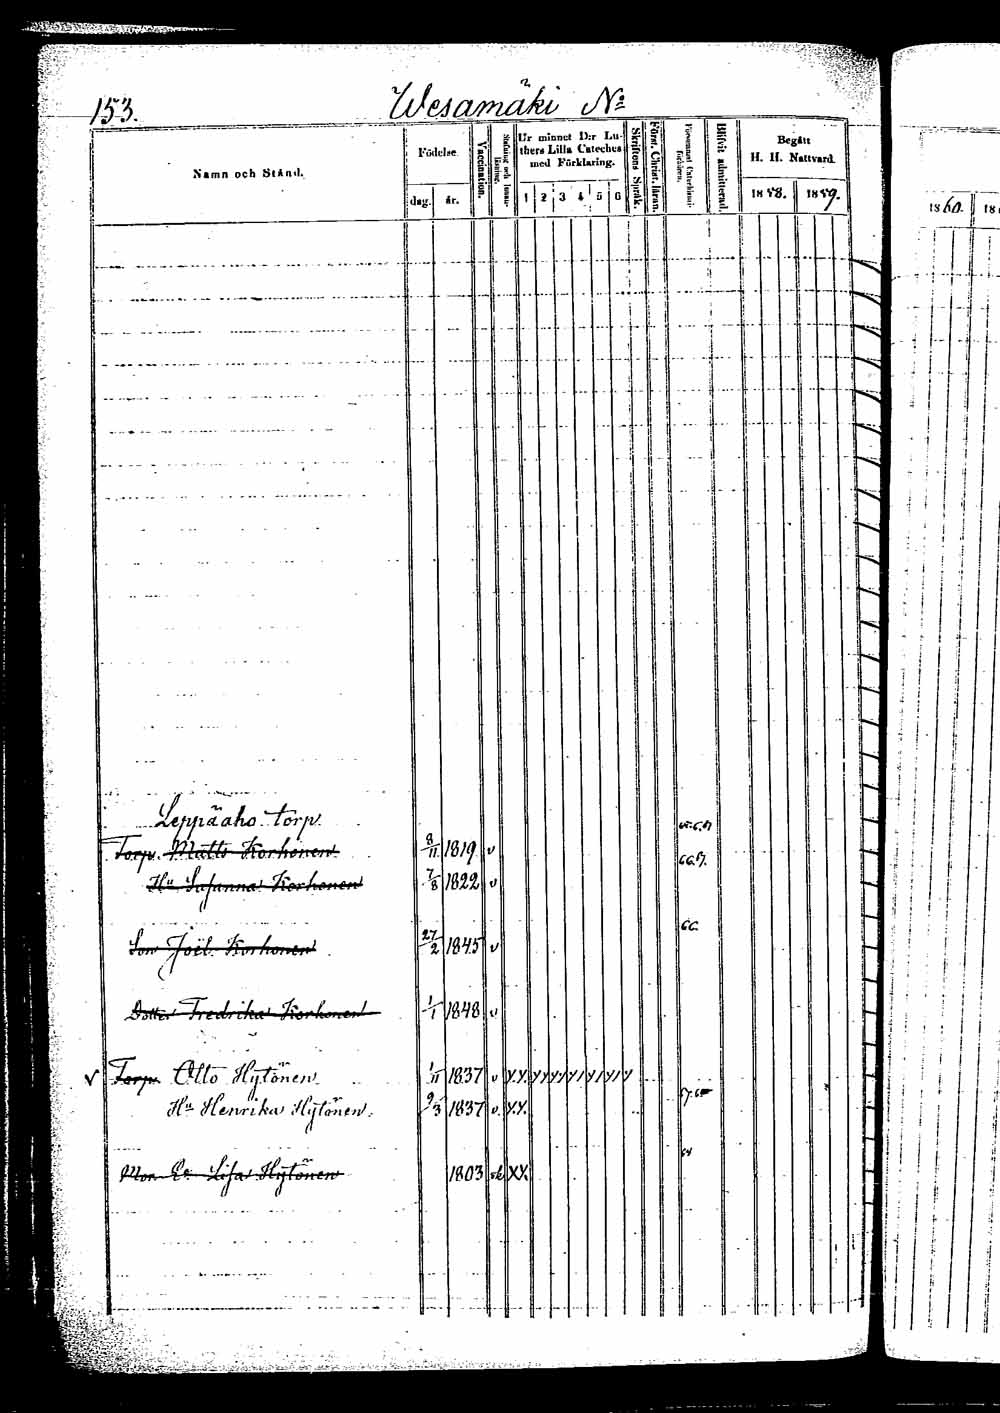 153. Wesamäki No
Namn och Stånd.
Födelse.
dag. år.
Vaccination.
Stafning och Innanläsning.
Ur minnet D:r Luthers Lilla Cateches med Förklaring.
1 2 3 4 5 6
Skriftens Språk.
Först. Christ. läran.
Blifvit admitterad.
Begått H. H. Nattvard.
1858. 1859.
1860. 18
Leppäaho torp.
Torp. Matts Korhonen 8/11 1819 v
66.7.
Hu Susanna Korhonen 7/8 1822 v
66.
Son Joël Korhonen 27/2 1845 v
Dotter Fredrika Korhonen 1/1 1848 v
v Torp. Otto Hytönen 1/11 1837 v
Hu Henrika Hytönen. 9/3 1837 v.
Lisa Hytönen 1803